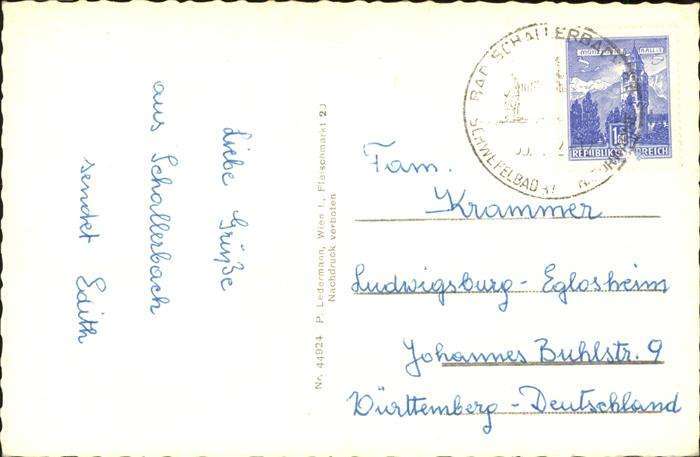 Liebe Grüße
aus Schallerbach
sendet Edith
Nr. 44924 P. Ledermann, Wien I., Fleischmarkt 20
Nachdruck verboten
BAD SCHALLERBACH
SCHWEFELBAD
REPUBLIK ÖSTERREICH
Fam.
Krammer
Ludwigsburg - Eglosheim
Johannes Buhlstr. 9
Württemberg - Deutschland